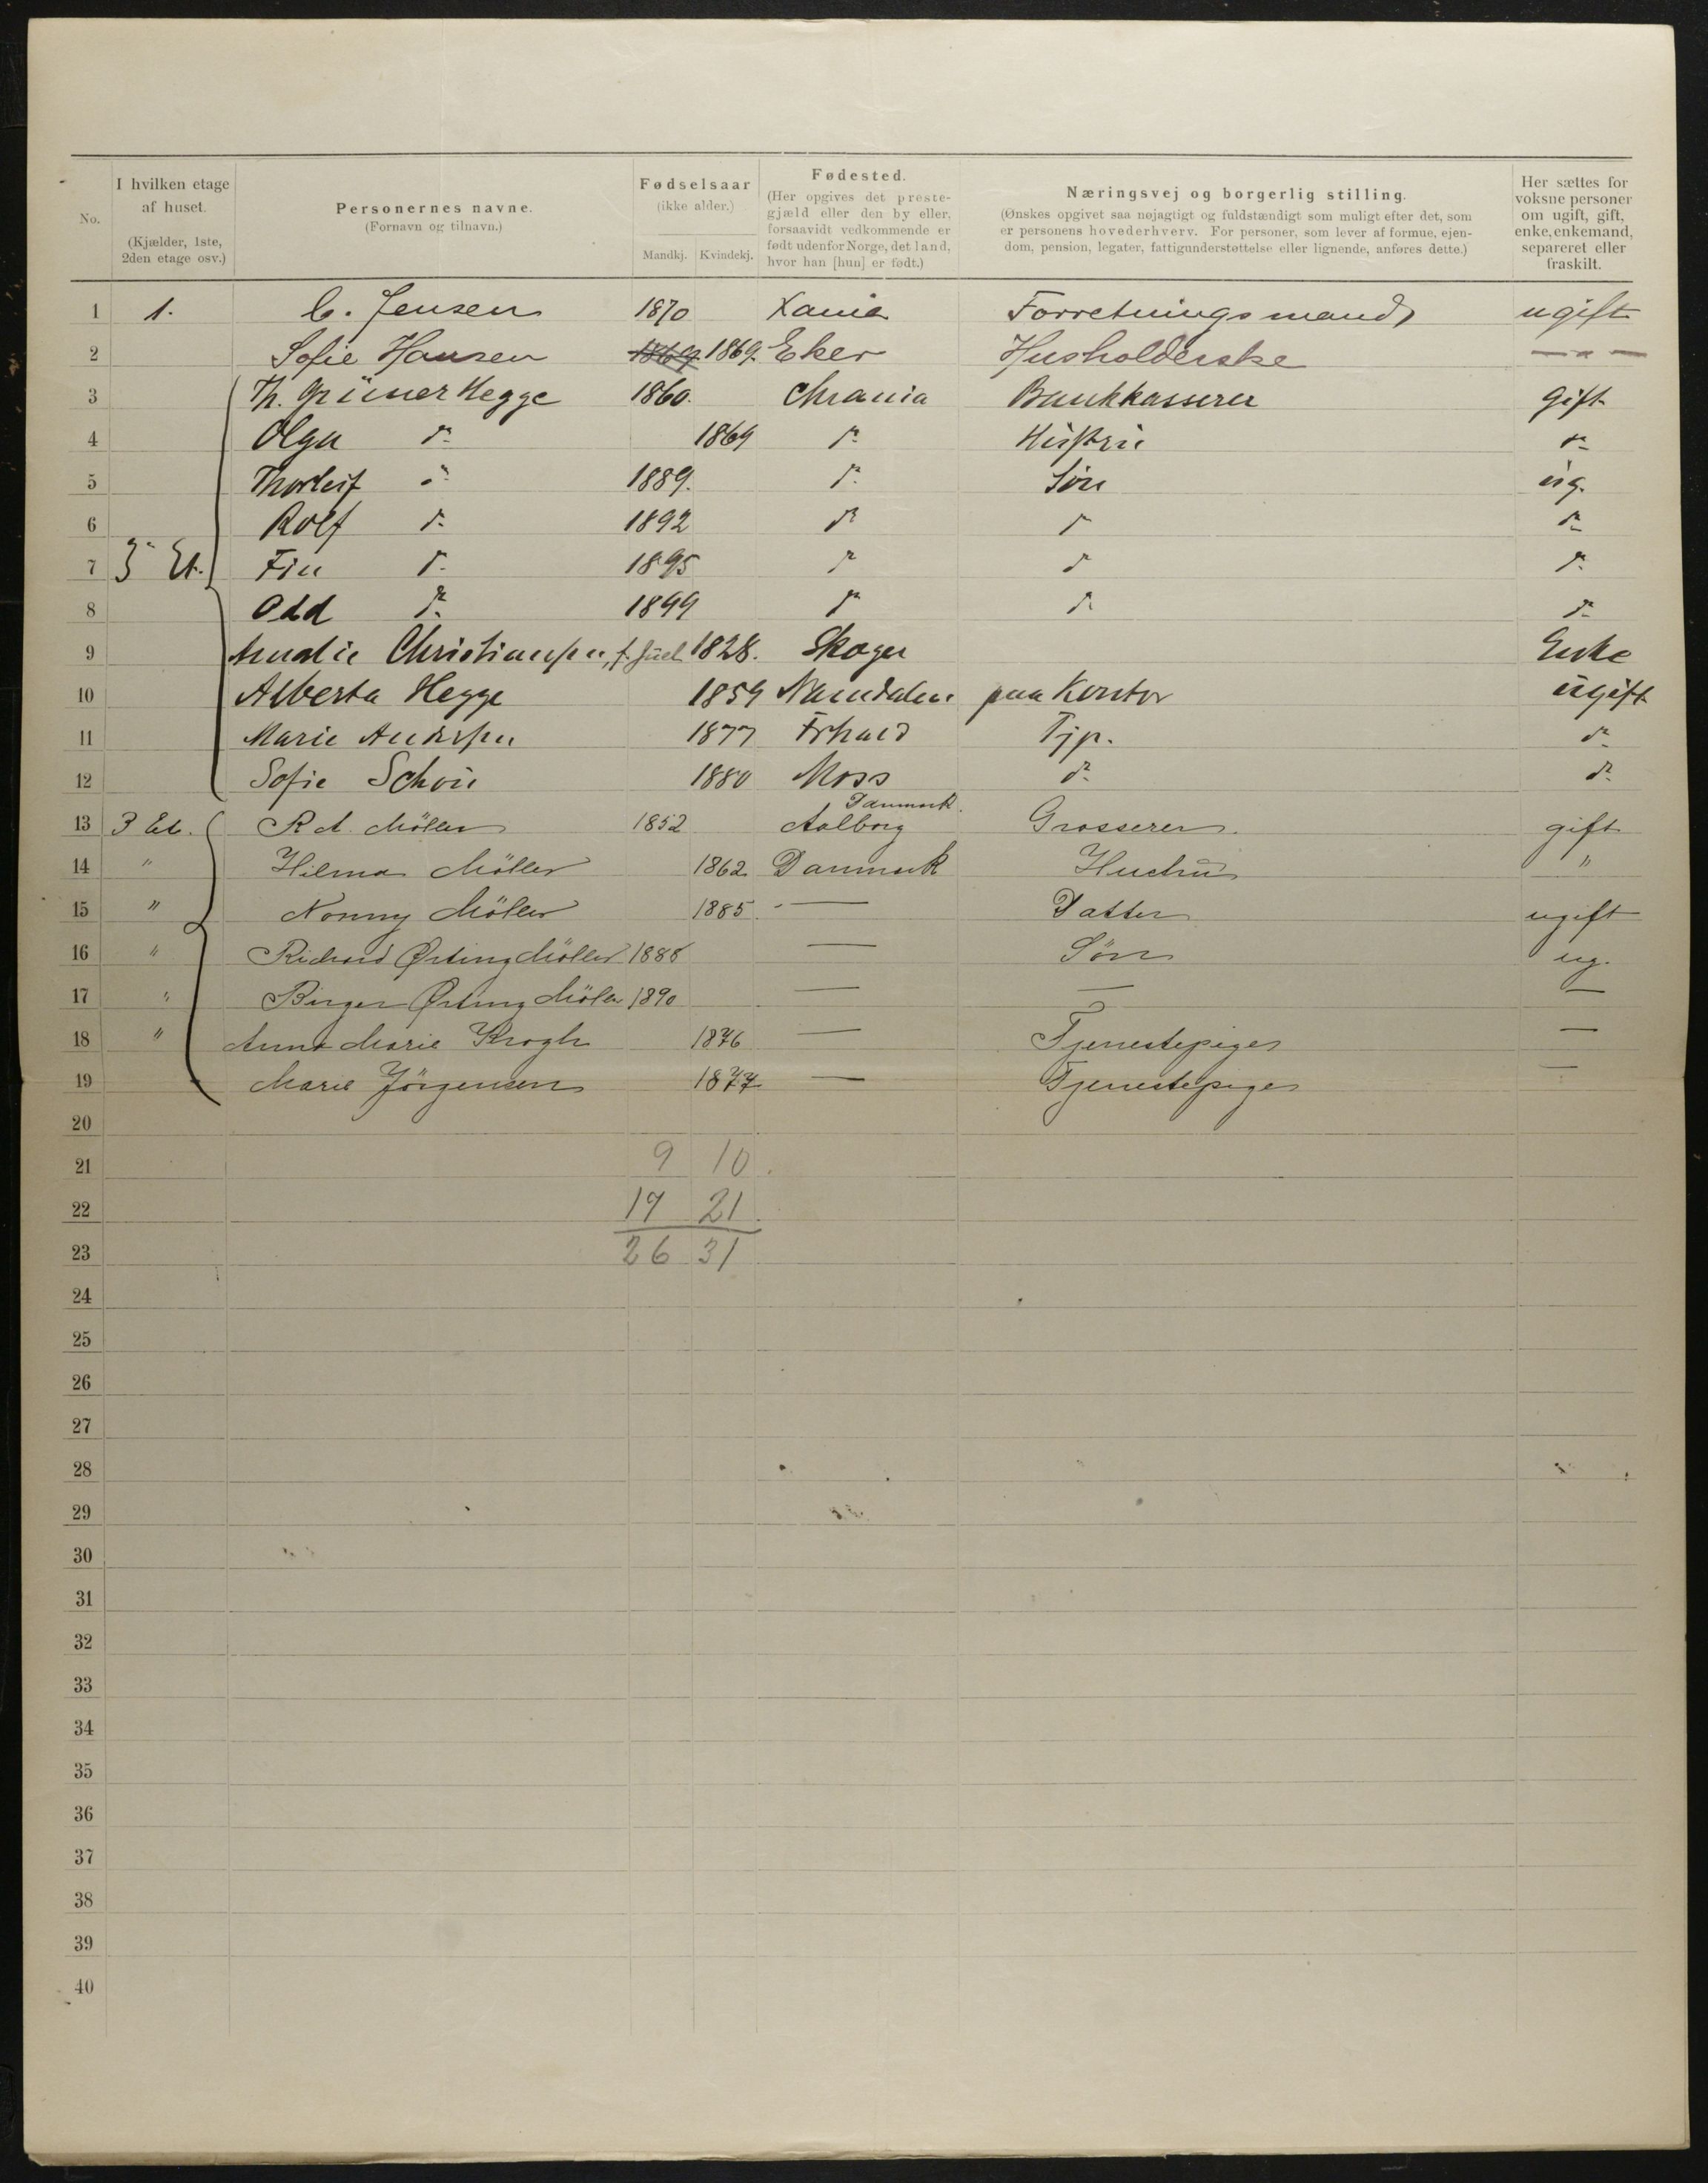 No. I hvilken etage af huset. (Kjælder, 1ste, 2den etage osv.) Personernes navne. (Fornavn og tilnavn.) Fødselsaar (ikke alder.) Mandkj. Kvindekj. Fødested. (Her opgives det prestegjæld eller den by eller, forsaavidt vedkommende er født udenfor Norge, det land, hvor han [hun] er født.) Næringsvej og borgerlig stilling. (Ønskes opgivet saa nøjagtigt og fuldstændigt som muligt efter det, som er personens hovederhverv. For personer, som lever af formue, ejendom, pension, legater, fattigunderstøttelse eller lignende, anføres dette.) Her sættes for voksne personer om ugift, gift, enke, enkemand, separeret eller fraskilt.
1 1. C. Jensen 1870 Xania Forretningsmand ugift
2 Sofie Hansen 1869. 1869. Eker Husholderske — " —
3 Th. Grüner Hegge 1860. Chrania Bankkasserer gift
4 Olga do 1869 do Hustru do
5 Thorleif do 1889. do Søn ug.
6 Rolf do 1892 do do do
7 3 Et. Fin do 1895 do do do
8 Odd do 1899 do do do
9 Amalie Christiansen, f. Juel 1828. Skoger Enke
10 Alberta Hegge 1859 Namdalen paa Kontor ugift
11 Marie Andersen 1877 Frhald Tjp. do
12 Sofie Schou 1880 Moss do do
13 3 Et. R A. Möller 1852 Aalborg Danmark. Grosserer. gift
14 " Hilma Möller 1862 Danmark Hustru "
15 " Nonny Möller 1885 — Datter ugift
16 " Richard Ørting Möller 1888 — Sön ug.
17 " Birger Ørting Möller 1890 — — —
18 " Anna Marie Krogh 1876 — Tjenestepige —
19 Marie Jörgensen 1877 — Tjenestepige —
20
21 9 10
22 17 21
23 26 31
24
25
26
27
28
29
30
31
32
33
34
35
36
37
38
39
40